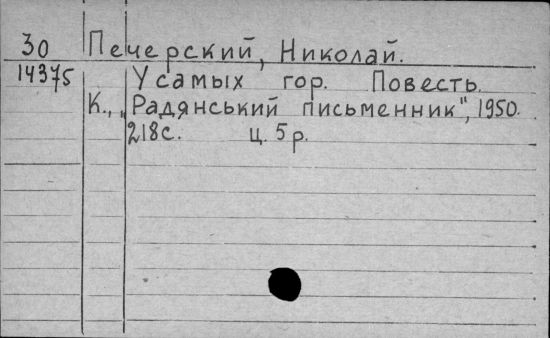 30 Печерский, Николай.
14375 У самых гор. Повесть.
К., „Радянський письменник", 1950.
218с. ц. 5р.